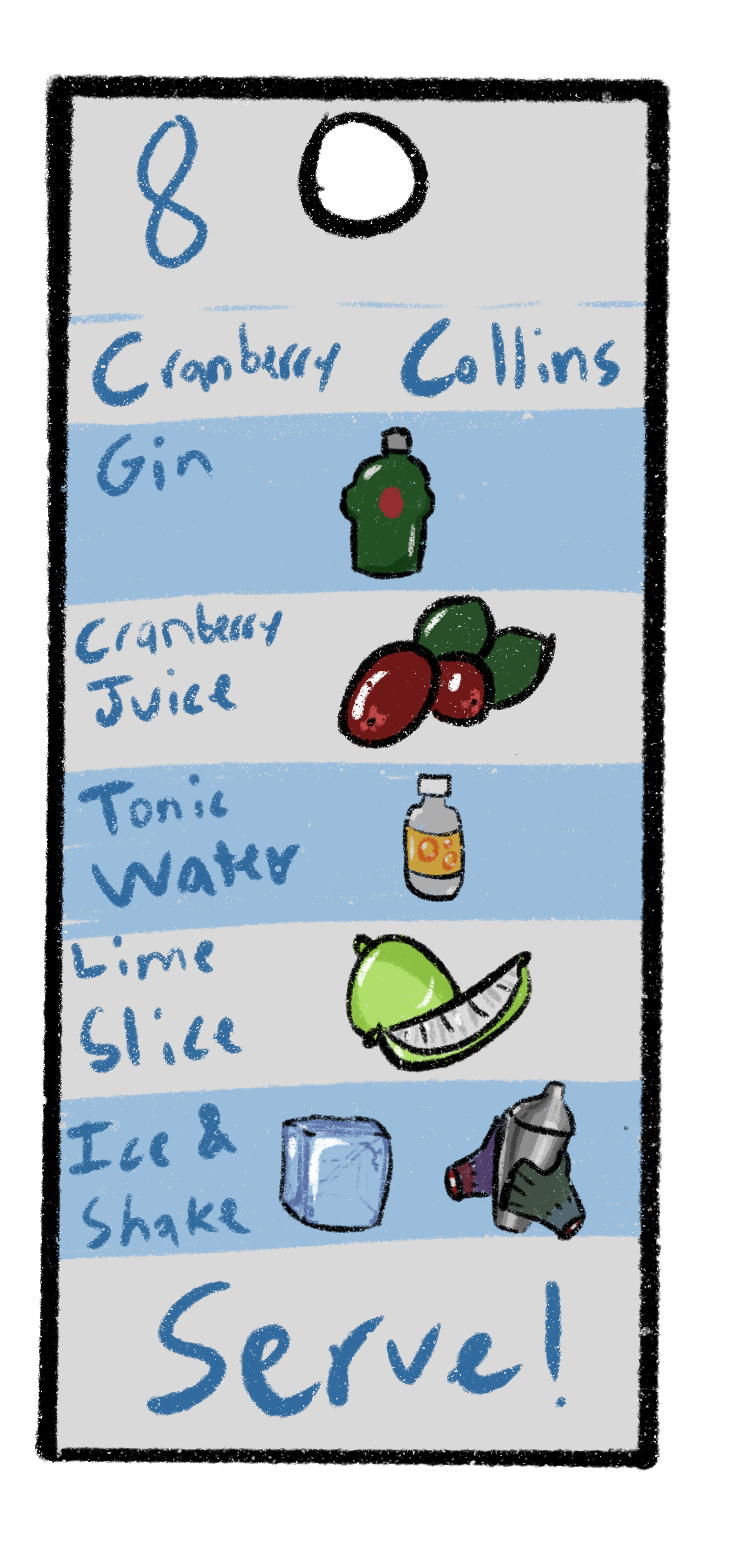 8
Cranberry Collins
Gin
Cranberry
Juice
Tonic
Water
Lime
Slice
Ice &
Shake
Serve!